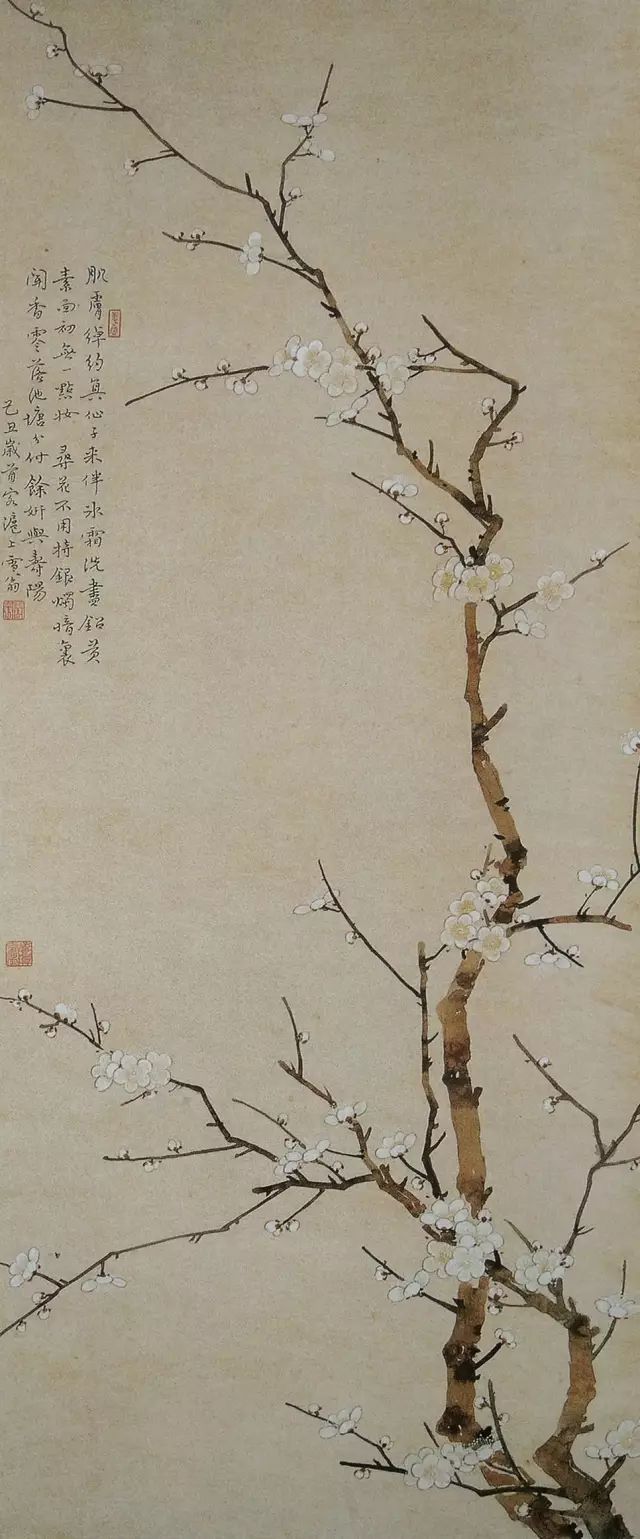 肌膚綽約真仙子来伴冰霜洗盡鉛黄
素面初無一點妝 尋花不用持銀燭暗裏
聞香零落池塘分付餘妍與壽陽
己丑歲首客滬上雪翁